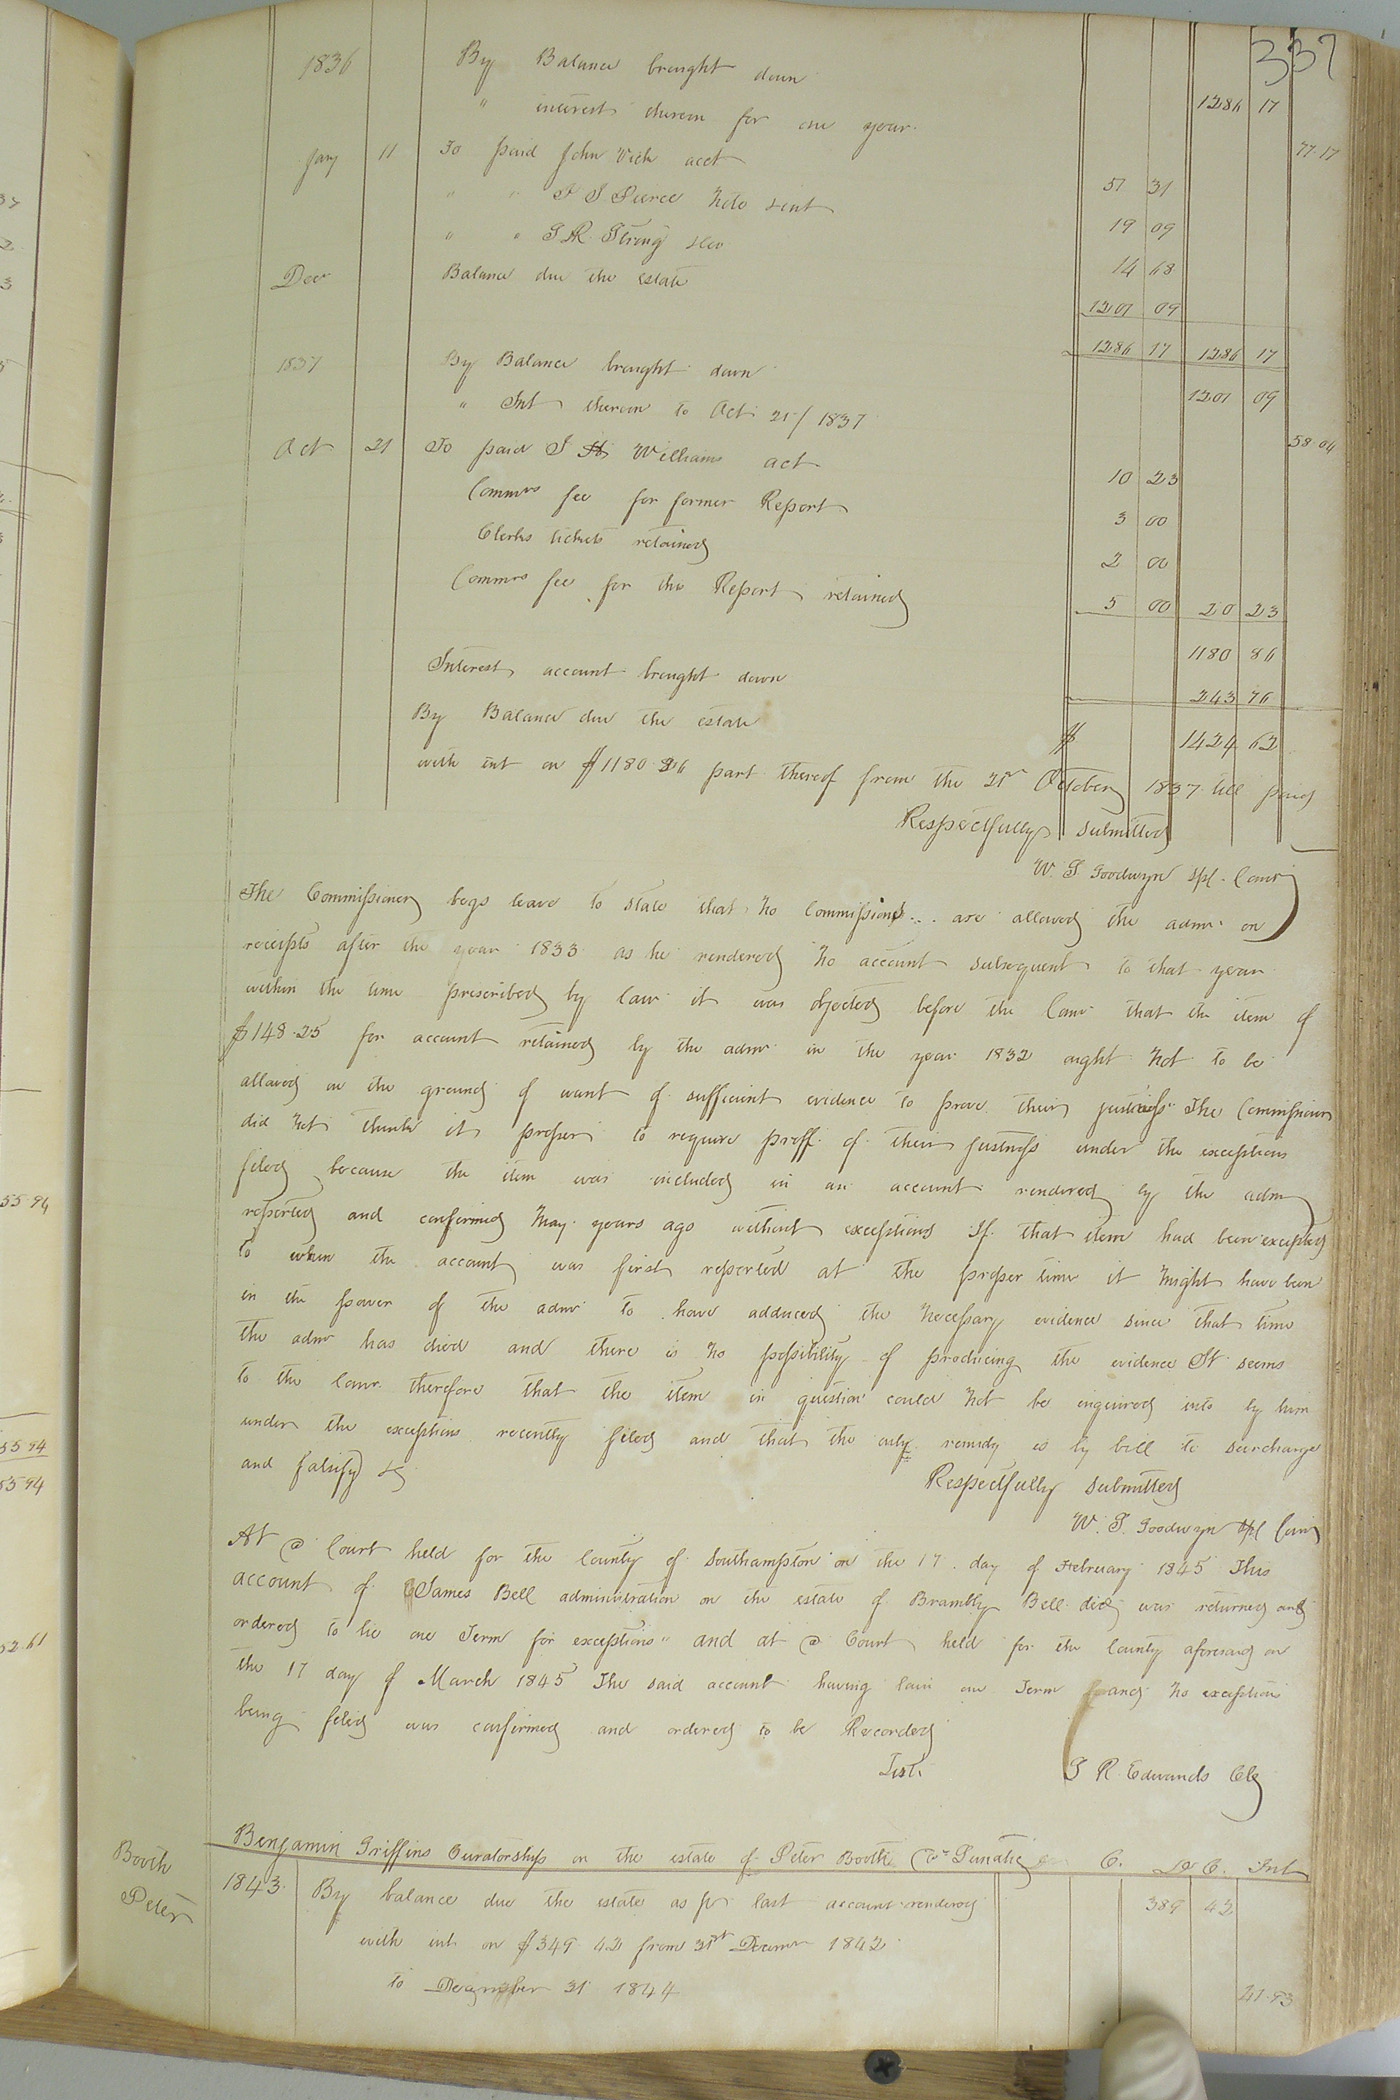 337
1836 By Balance brought down 1286 17
" interest thereon for one year 77.17
Jany 11 To paid John Vick acct 51 31
" " Pierce note sent 19 09
" " Strong 14 68
Dec Balance due the estate 1201 09
1286 17 1286 17
1837 By Balance brought down 1201 09
" Int thereon to Oct 21/1837 58.04
Oct 21 To paid Williams act 10 23
Commrs fee for former Report 3 00
Clerks tickets retained 2 00
Commrs fee for the Report retained 5 00 20 23
1180 86
Interest account brought down 243 76
By Balance due the estate $ 1424 62
with int on $1180 86 part thereof from the 21st October 1837 till paid
Respectfully submitted
W. S. Goodwyn spl. Comr
The Commissioner begs leave to state that no commissions are allowed the admr on
receipts after the year 1833 as he rendered no account subsequent to that year
within the time prescribed by law it was objected before the Comr that the item of
$148.25 for account retained by the admr in the year 1832 ought not to be
allowed on the ground of want of sufficient evidence to prove their justness The Commissioner
did not think it proper to require proff of their justness under the exceptions
filed because the item was included in an account rendered by the admr
reported and confirmed many years ago without exceptions If that item had been excepted
to when the account was first reported at the proper time it might have been
in the power of the admr to have adduced the necessary evidence since that time
the admr has died and there is no possibility of producing the evidence It seems
to the Comr therefore that the item in question could not be enquired into by him
under the exceptions recently filed and that the only remedy is by bill to surcharge
and falsify &c
Respectfully submitted
W. S. Goodwyn spl Comr
At a Court held for the County of Southampton on the 17 day of February 1845 This
account of James Bell administration on the estate of Brambly Bell decd was returned and
ordered to lie one Term for exceptions" and at a Court held for the County aforesaid on
the 17 day of March 1845 The said account having lain one Term and no exceptions
being filed was confirmed and ordered to be Recorded
Test. R Edwards Clk
Benjamin Griffins Curatorship on the estate of Peter Booth Lunatic C. D C. Int
Booth
Peter
1843 By balance due the estate as pr last account rendered 389 42
with int on $349 42 from 31st Decemr 1842
to December 31 1844 41.93
55 94
55 94
55 94
52.61